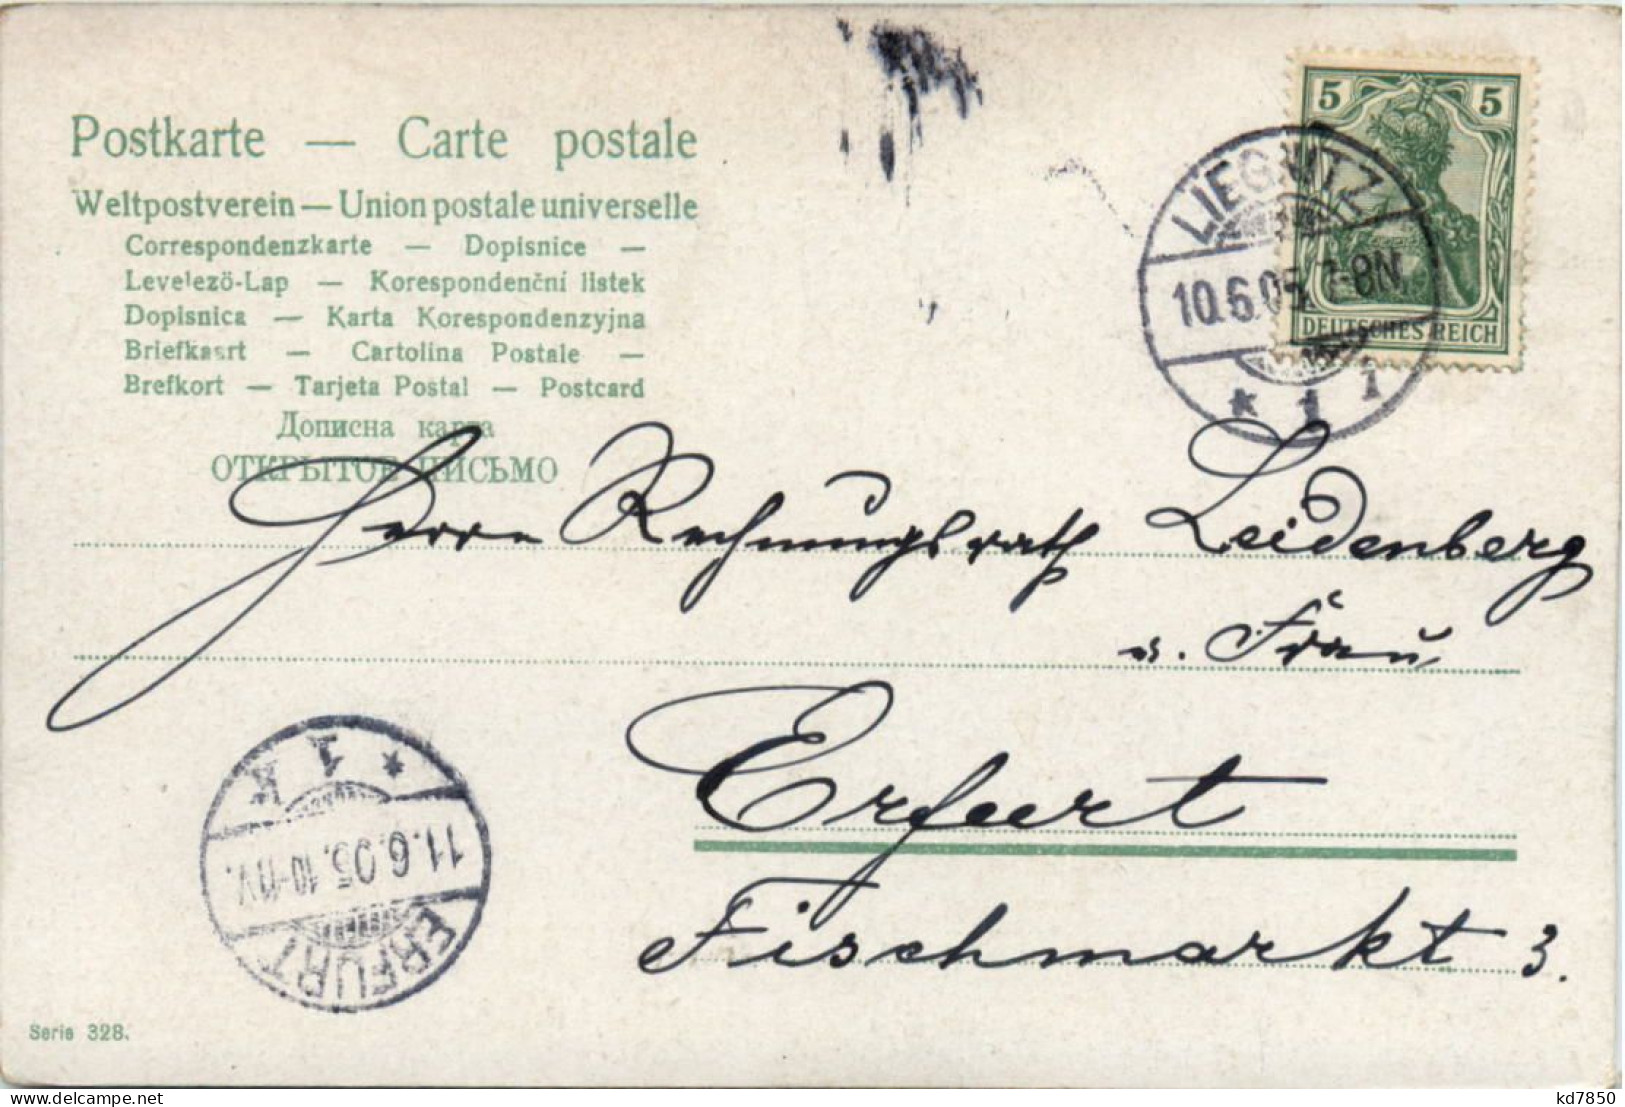 Postkarte — Carte postale
Weltpostverein — Union postale universelle
Correspondenzkarte — Dopisnice —
Levelező-Lap — Korespondenční listek
Dopisnica — Karta Korespondenzyjna
Briefkaart — Cartolina Postale —
Brefkort — Tarjeta Postal — Postcard
Дописна карта
ОТКРЫТОЕ ПИСЬМО
5 5
DEUTSCHES REICH
LIEGNITZ
10.6.05. 7-8N.
* 1 i
Herrn Rechnungsrath Leidenberg
u. Frau
Erfurt
Fischmarkt 3.
ERFURT
11.6.05. 10-11V.
* 1 k
Serie 328.
www.delcampe.net
kd7850